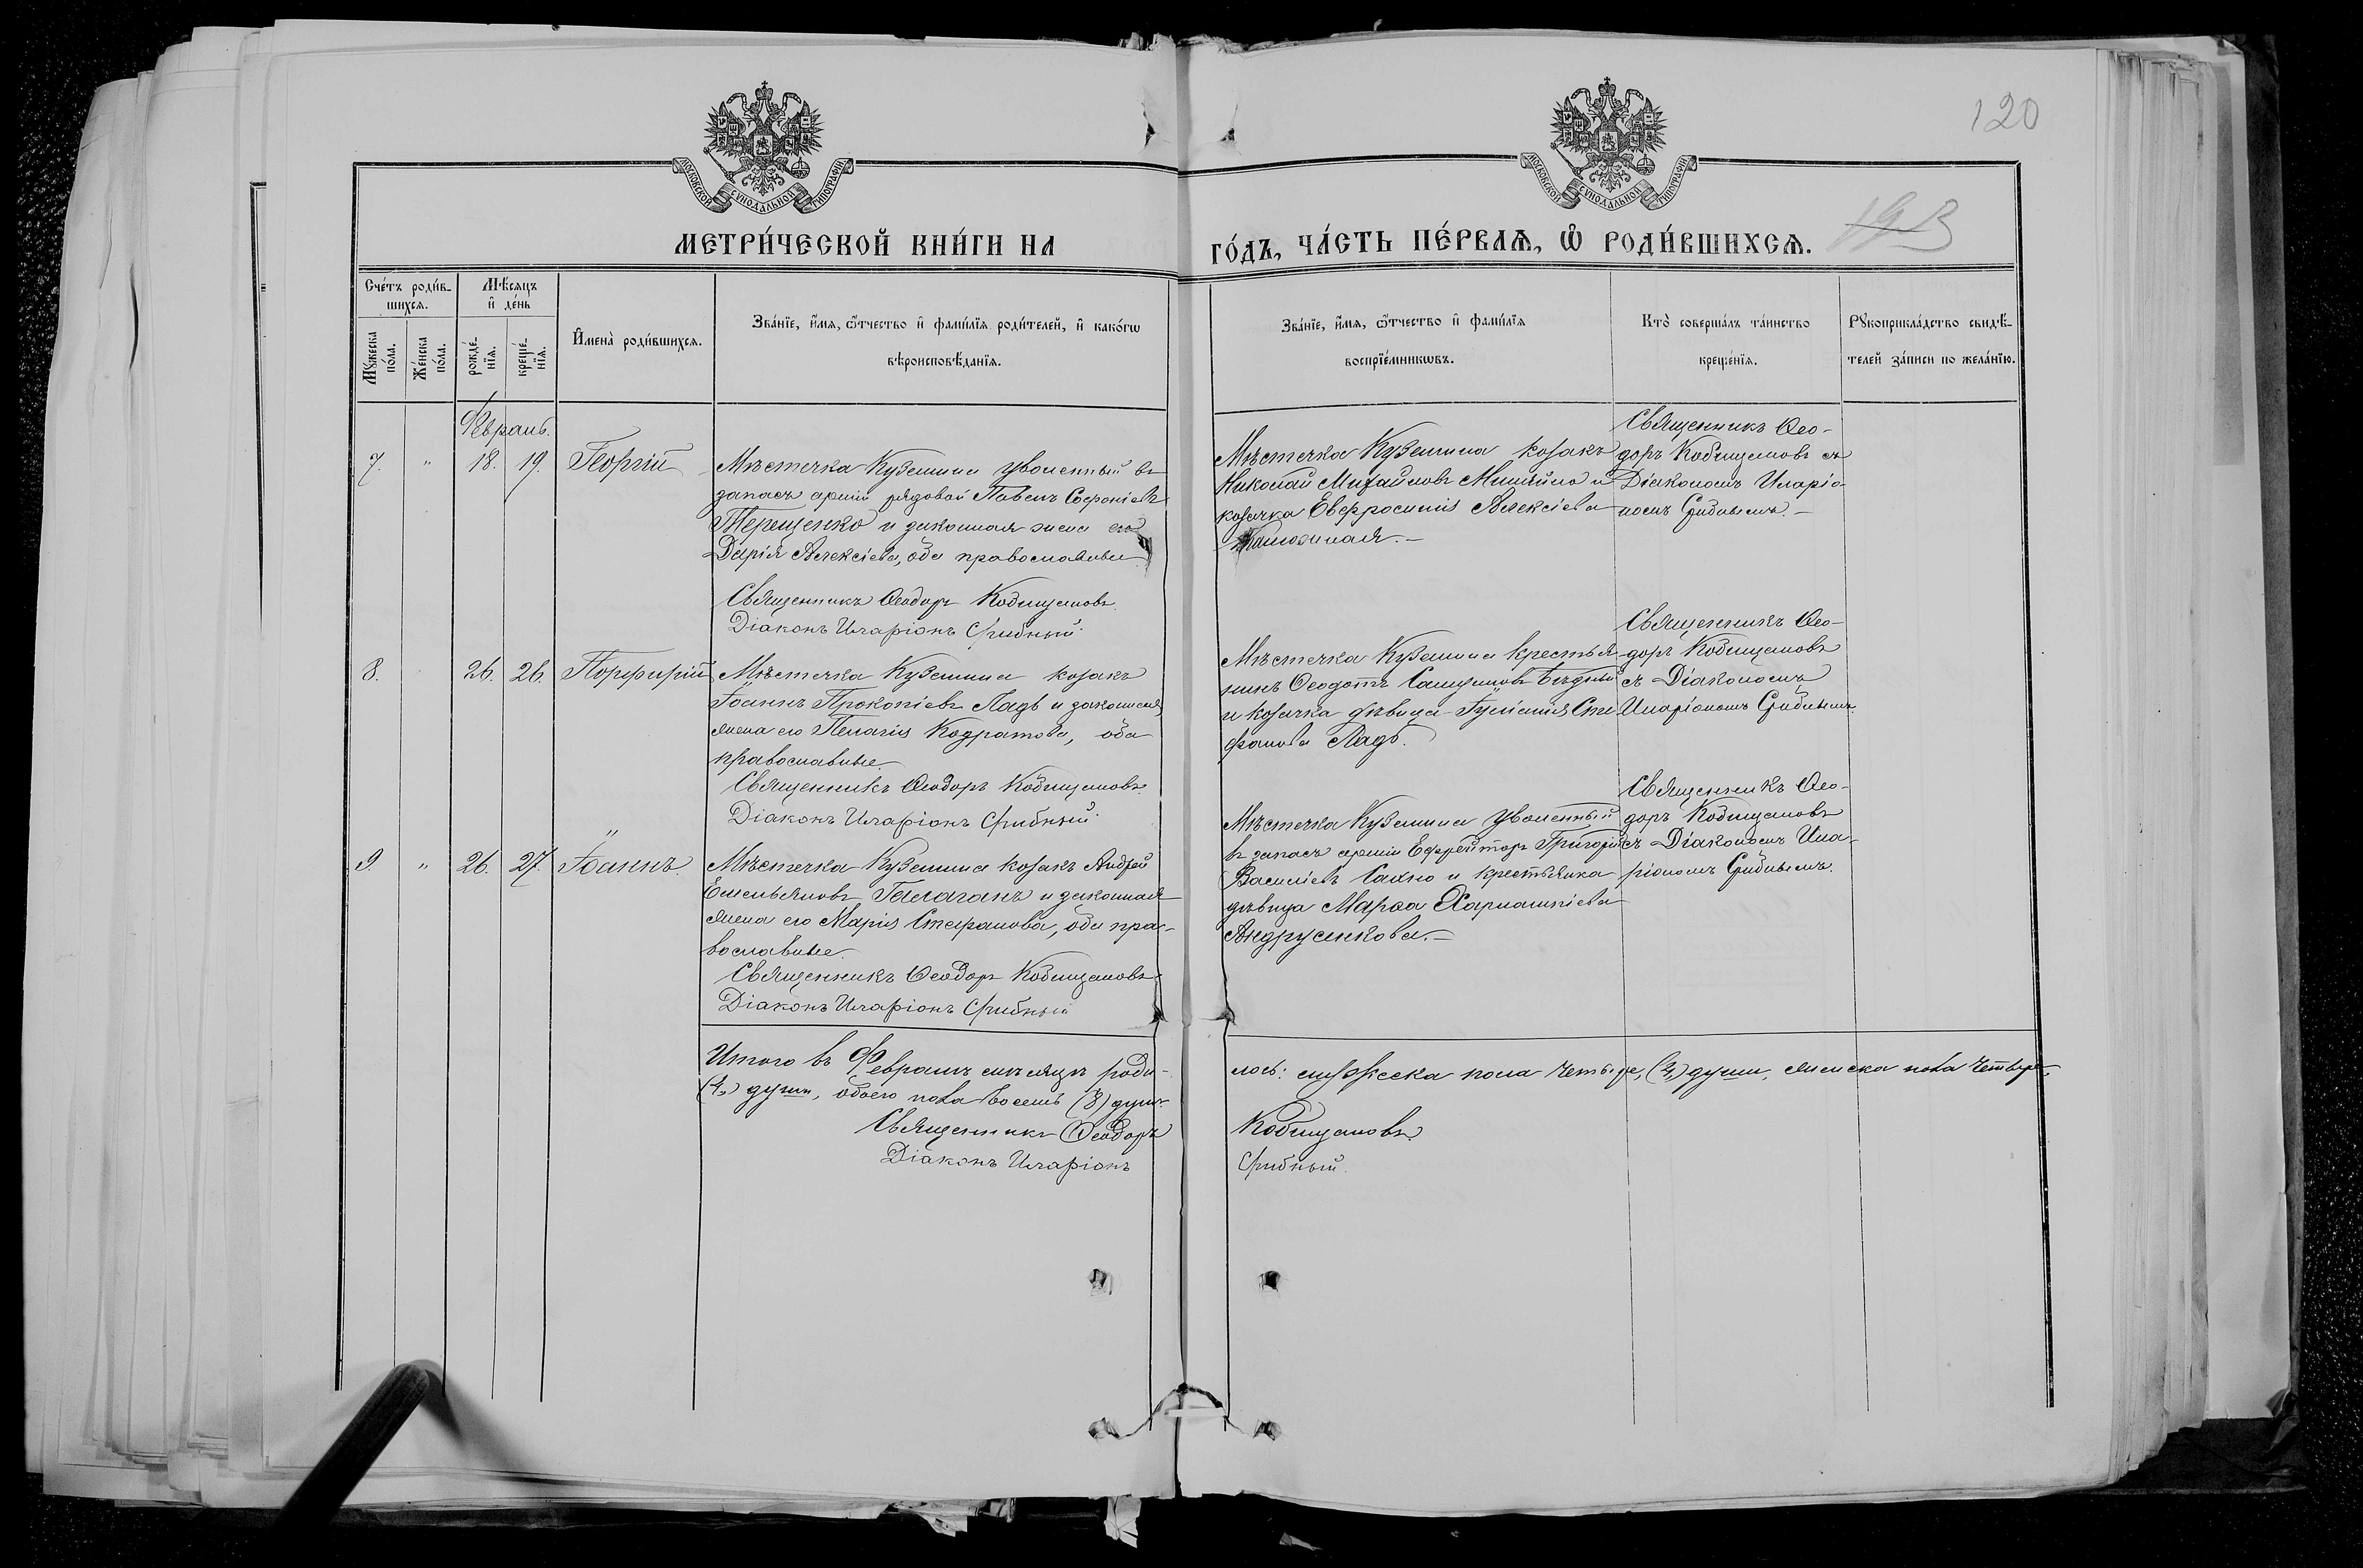 120
МОСКОВСКОЙ СѴНОДАЛЬНОЙ ТИПОГРАФІИ
МОСКОВСКОЙ СѴНОДАЛЬНОЙ ТИПОГРАФІИ
МЕТРИ́ЧЕСКОЙ КНИ́ГИ НА
ГО́ДЪ, ЧА́СТЬ ПЕ́РВАѦ, Ѡ РОДИ́ВШИХСѦ.
Сче́тъ роди́в-
шихсѧ.
Мѣ́сѧцъ
и҆ де́нь
Мꙋ́жеска
по́ла.
Же́нска
по́ла.
рожде́-
нїѧ.
креще́-
нїѧ.
И҆мена̀ роди́вшихсѧ.
Зва́нїе, и҆́мѧ, ѻ҆́тчество и҆ фами́лїѧ роди́телей, и҆ како́гѡ
вѣроисповѣ́данїѧ.
Зва́нїе, и҆́мѧ, ѻ҆́тчество и҆ фами́лїѧ
воспрїе́мникѡвъ.
Кто̀ соверша́лъ та́инство
креще́нїѧ.
Рꙋкоприкла́дство свидѣ́-
телей за́писи по жела́нїю.
Февраль.
7. " 18. 19. Георгій
Мѣстечка Куземина уволенный въ
запасъ арміи рядовой Павелъ Софоніевъ
Терещенко и законная жена его
Дарія Алексіева, оба православные
Священникъ Ѳеодоръ Кобищановъ.
Діаконъ Иларіонъ Срибный.
Мѣстечка Куземина козакъ
Николай Михайловъ и
козачка Евфросинія Алексіева
Священникъ Ѳео-
доръ Кобищановъ съ
Діакономъ Иларіо-
номъ Срибнымъ.-
8. 26. 26. Порфирій
Мѣстечка Куземина козакъ
Іоаннъ Прокопіевъ Ладъ и законная
жена его Пелагія Кодратова, оба
православные.
Священникъ Ѳеодоръ Кобищановъ.
Діаконъ Иларіонъ Срибный.
Мѣстечка Куземина крестья-
нинъ Ѳеодотъ
и козачка дѣвица Іуліанія Сте-
фанова Ладъ.
Священникъ Ѳео-
доръ Кобищановъ
съ Діакономъ
Иларіономъ Срибнымъ.
9. " 26. 27. Іоаннъ.
Мѣстечка Куземина козакъ Андрей
Емельяновъ Галаганъ и законная
жена его Марія Стефанова, оба пра-
вославные.
Священникъ Ѳеодоръ Кобищановъ.
Діаконъ Иларіонъ Срибный
Мѣстечка Куземина уволенный
въ запасъ арміи Ефрейторъ Григорій
Василіевъ Сахно и крестьянка
дѣвица Марѳа Харлампіева
Андрусенкова.-
Священникъ Ѳео-
доръ Кобищановъ
съ Діакономъ Ила-
ріономъ Срибнымъ.
Итого въ Февралѣ мѣсяцѣ роди-
лось: мужеска пола четыре, (4) души, женска пола четыре,
(4) души, обоего пола восемь (8) душъ.
Священникъ Ѳеодоръ Кобищановъ.
Діаконъ Иларіонъ Срибный.